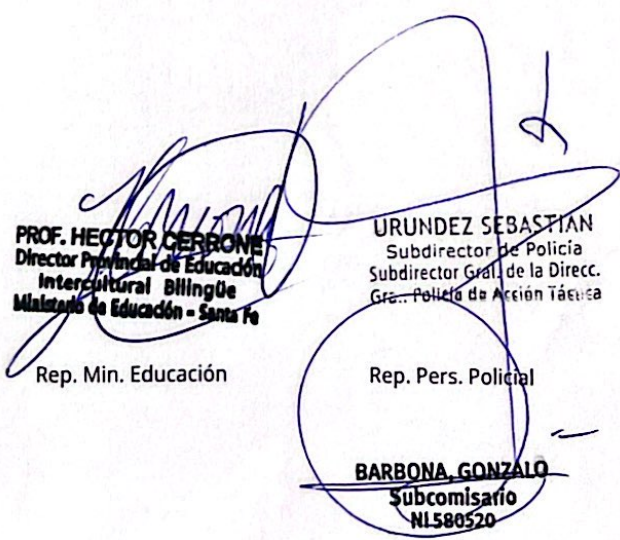 PROF. HECTOR CERRONE
Director Provincial de Educación
Intercultural Bilingüe
Ministerio de Educación - Santa Fe
Rep. Min. Educación
URUNDEZ SEBASTIAN
Subdirector de Policía
Subdirector Gral. de la Direcc.
Gra.. Policía de Acción Táctica
Rep. Pers. Policial
BARBONA, GONZALO
Subcomisario
NI.580520